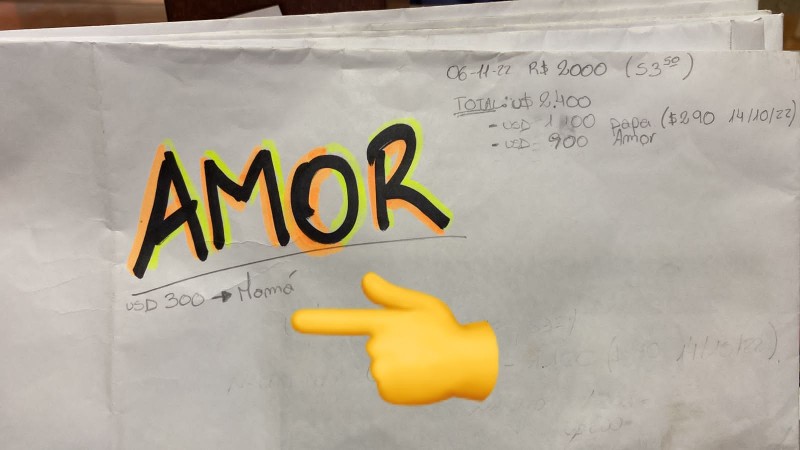 06-11-22 R$ 2000 (53⁵⁰)
TOTAL: U$ 2.400
- USD 1.100 papa ($290 14/10/22)
- USD = 900 Amor
AMOR
USD 300 → Mamá
14/10/22)